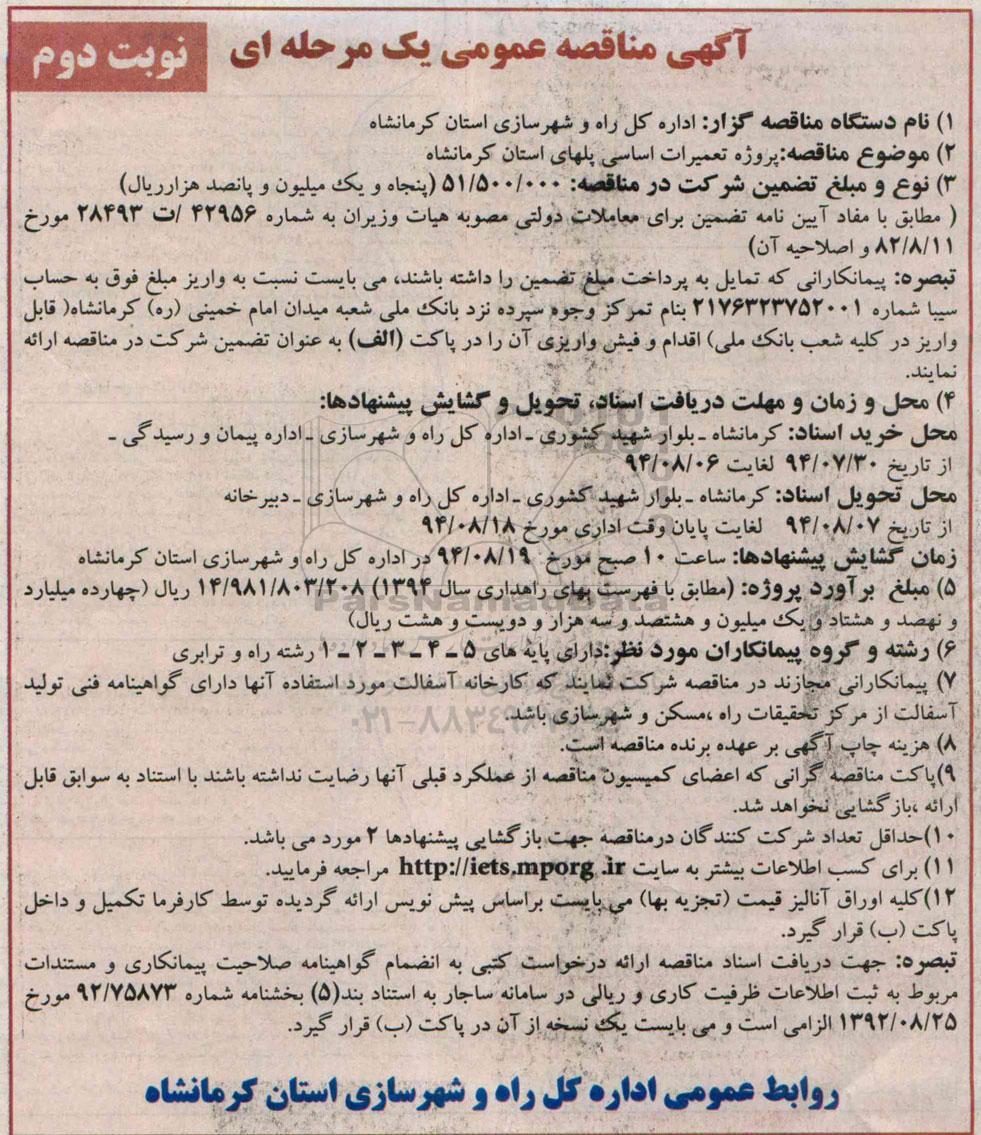 آگهی مناقصه عمومی یک مرحله ای
نوبت دوم
۱) نام دستگاه مناقصه گزار: اداره کل راه و شهرسازی استان کرمانشاه
۲) موضوع مناقصه:پروژه تعمیرات اساسی پلهای استان کرمانشاه
۳) نوع و مبلغ تضمین شرکت در مناقصه: ۵۱/۵۰۰/۰۰۰ (پنجاه و یک میلیون و پانصد هزارریال)
( مطابق با مفاد آیین نامه تضمین برای معاملات دولتی مصوبه هیات وزیران به شماره ۴۲۹۵۶ /ت ۲۸۴۹۳ مورخ
۸۲/۸/۱۱ و اصلاحیه آن)
تبصره: پیمانکارانی که تمایل به پرداخت مبلغ تضمین را داشته باشند، می بایست نسبت به واریز مبلغ فوق به حساب
سیبا شماره ۲۱۷۶۳۲۳۷۵۲۰۰۱ بنام تمرکز وجوه سپرده نزد بانک ملی شعبه میدان امام خمینی (ره) کرمانشاه( قابل
واریز در کلیه شعب بانک ملی) اقدام و فیش واریزی آن را در پاکت (الف) به عنوان تضمین شرکت در مناقصه ارائه
نمایند.
۴) محل و زمان و مهلت دریافت اسناد، تحویل و گشایش پیشنهادها:
محل خرید اسناد: کرمانشاه ـ بلوار شهید کشوری ـ اداره کل راه و شهرسازی ـ اداره پیمان و رسیدگی ـ
از تاریخ ۹۴/۰۷/۳۰ لغایت ۹۴/۰۸/۰۶
محل تحویل اسناد: کرمانشاه ـ بلوار شهید کشوری ـ اداره کل راه و شهرسازی ـ دبیرخانه
از تاریخ ۹۴/۰۸/۰۷ لغایت پایان وقت اداری مورخ ۹۴/۰۸/۱۸
زمان گشایش پیشنهادها: ساعت ۱۰ صبح مورخ ۹۴/۰۸/۱۹ در اداره کل راه و شهرسازی استان کرمانشاه
۵) مبلغ برآورد پروژه: (مطابق با فهرست بهای راهداری سال ۱۳۹۴) ۱۴/۹۸۱/۸۰۳/۲۰۸ ریال (چهارده میلیارد
و نهصد و هشتاد و یک میلیون و هشتصد و سه هزار و دویست و هشت ریال)
ParsNamadData
۶) رشته و گروه پیمانکاران مورد نظر:دارای پایه های ۵ ـ ۴ ـ ۳ ـ ۲ ـ ۱ رشته راه و ترابری
۷) پیمانکارانی مجازند در مناقصه شرکت نمایند که کارخانه آسفالت مورد استفاده آنها دارای گواهینامه فنی تولید
آسفالت از مرکز تحقیقات راه ،مسکن و شهرسازی باشد.
۸) هزینه چاپ آگهی بر عهده برنده مناقصه است.
۹)پاکت مناقصه گرانی که اعضای کمیسیون مناقصه از عملکرد قبلی آنها رضایت نداشته باشند با استناد به سوابق قابل
ارائه ،بازگشایی نخواهد شد.
۱۰)حداقل تعداد شرکت کنندگان درمناقصه جهت بازگشایی پیشنهادها ۲ مورد می باشد.
۱۱) برای کسب اطلاعات بیشتر به سایت http://iets.mporg .ir مراجعه فرمایید.
۱۲)کلیه اوراق آنالیز قیمت (تجزیه بها) می بایست براساس پیش نویس ارائه گردیده توسط کارفرما تکمیل و داخل
پاکت (ب) قرار گیرد.
تبصره: جهت دریافت اسناد مناقصه ارائه درخواست کتبی به انضمام گواهینامه صلاحیت پیمانکاری و مستندات
مربوط به ثبت اطلاعات ظرفیت کاری و ریالی در سامانه ساجار به استناد بند(۵) بخشنامه شماره ۹۲/۷۵۸۷۳ مورخ
۱۳۹۲/۰۸/۲۵ الزامی است و می بایست یک نسخه از آن در پاکت (ب) قرار گیرد.
روابط عمومی اداره کل راه و شهرسازی استان کرمانشاه